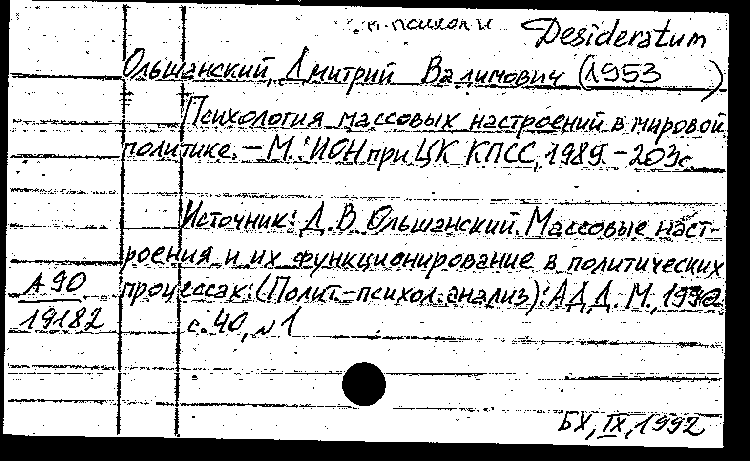 Desideratum
Ольшанский, Дмитрий Вадимович (1953 )
Психология массовых настроений в мировой
политике. – М.: ИОН при ЦК КПСС, 1989. – 203с
Источник: Д. В. Ольшанский. Массовые наст-
роения и их функционирование в политических
процессах: (Полит-психол. анализ): АДД. М., 1990
А 90
19182
с. 40, № 1
БХ, IX, 1992